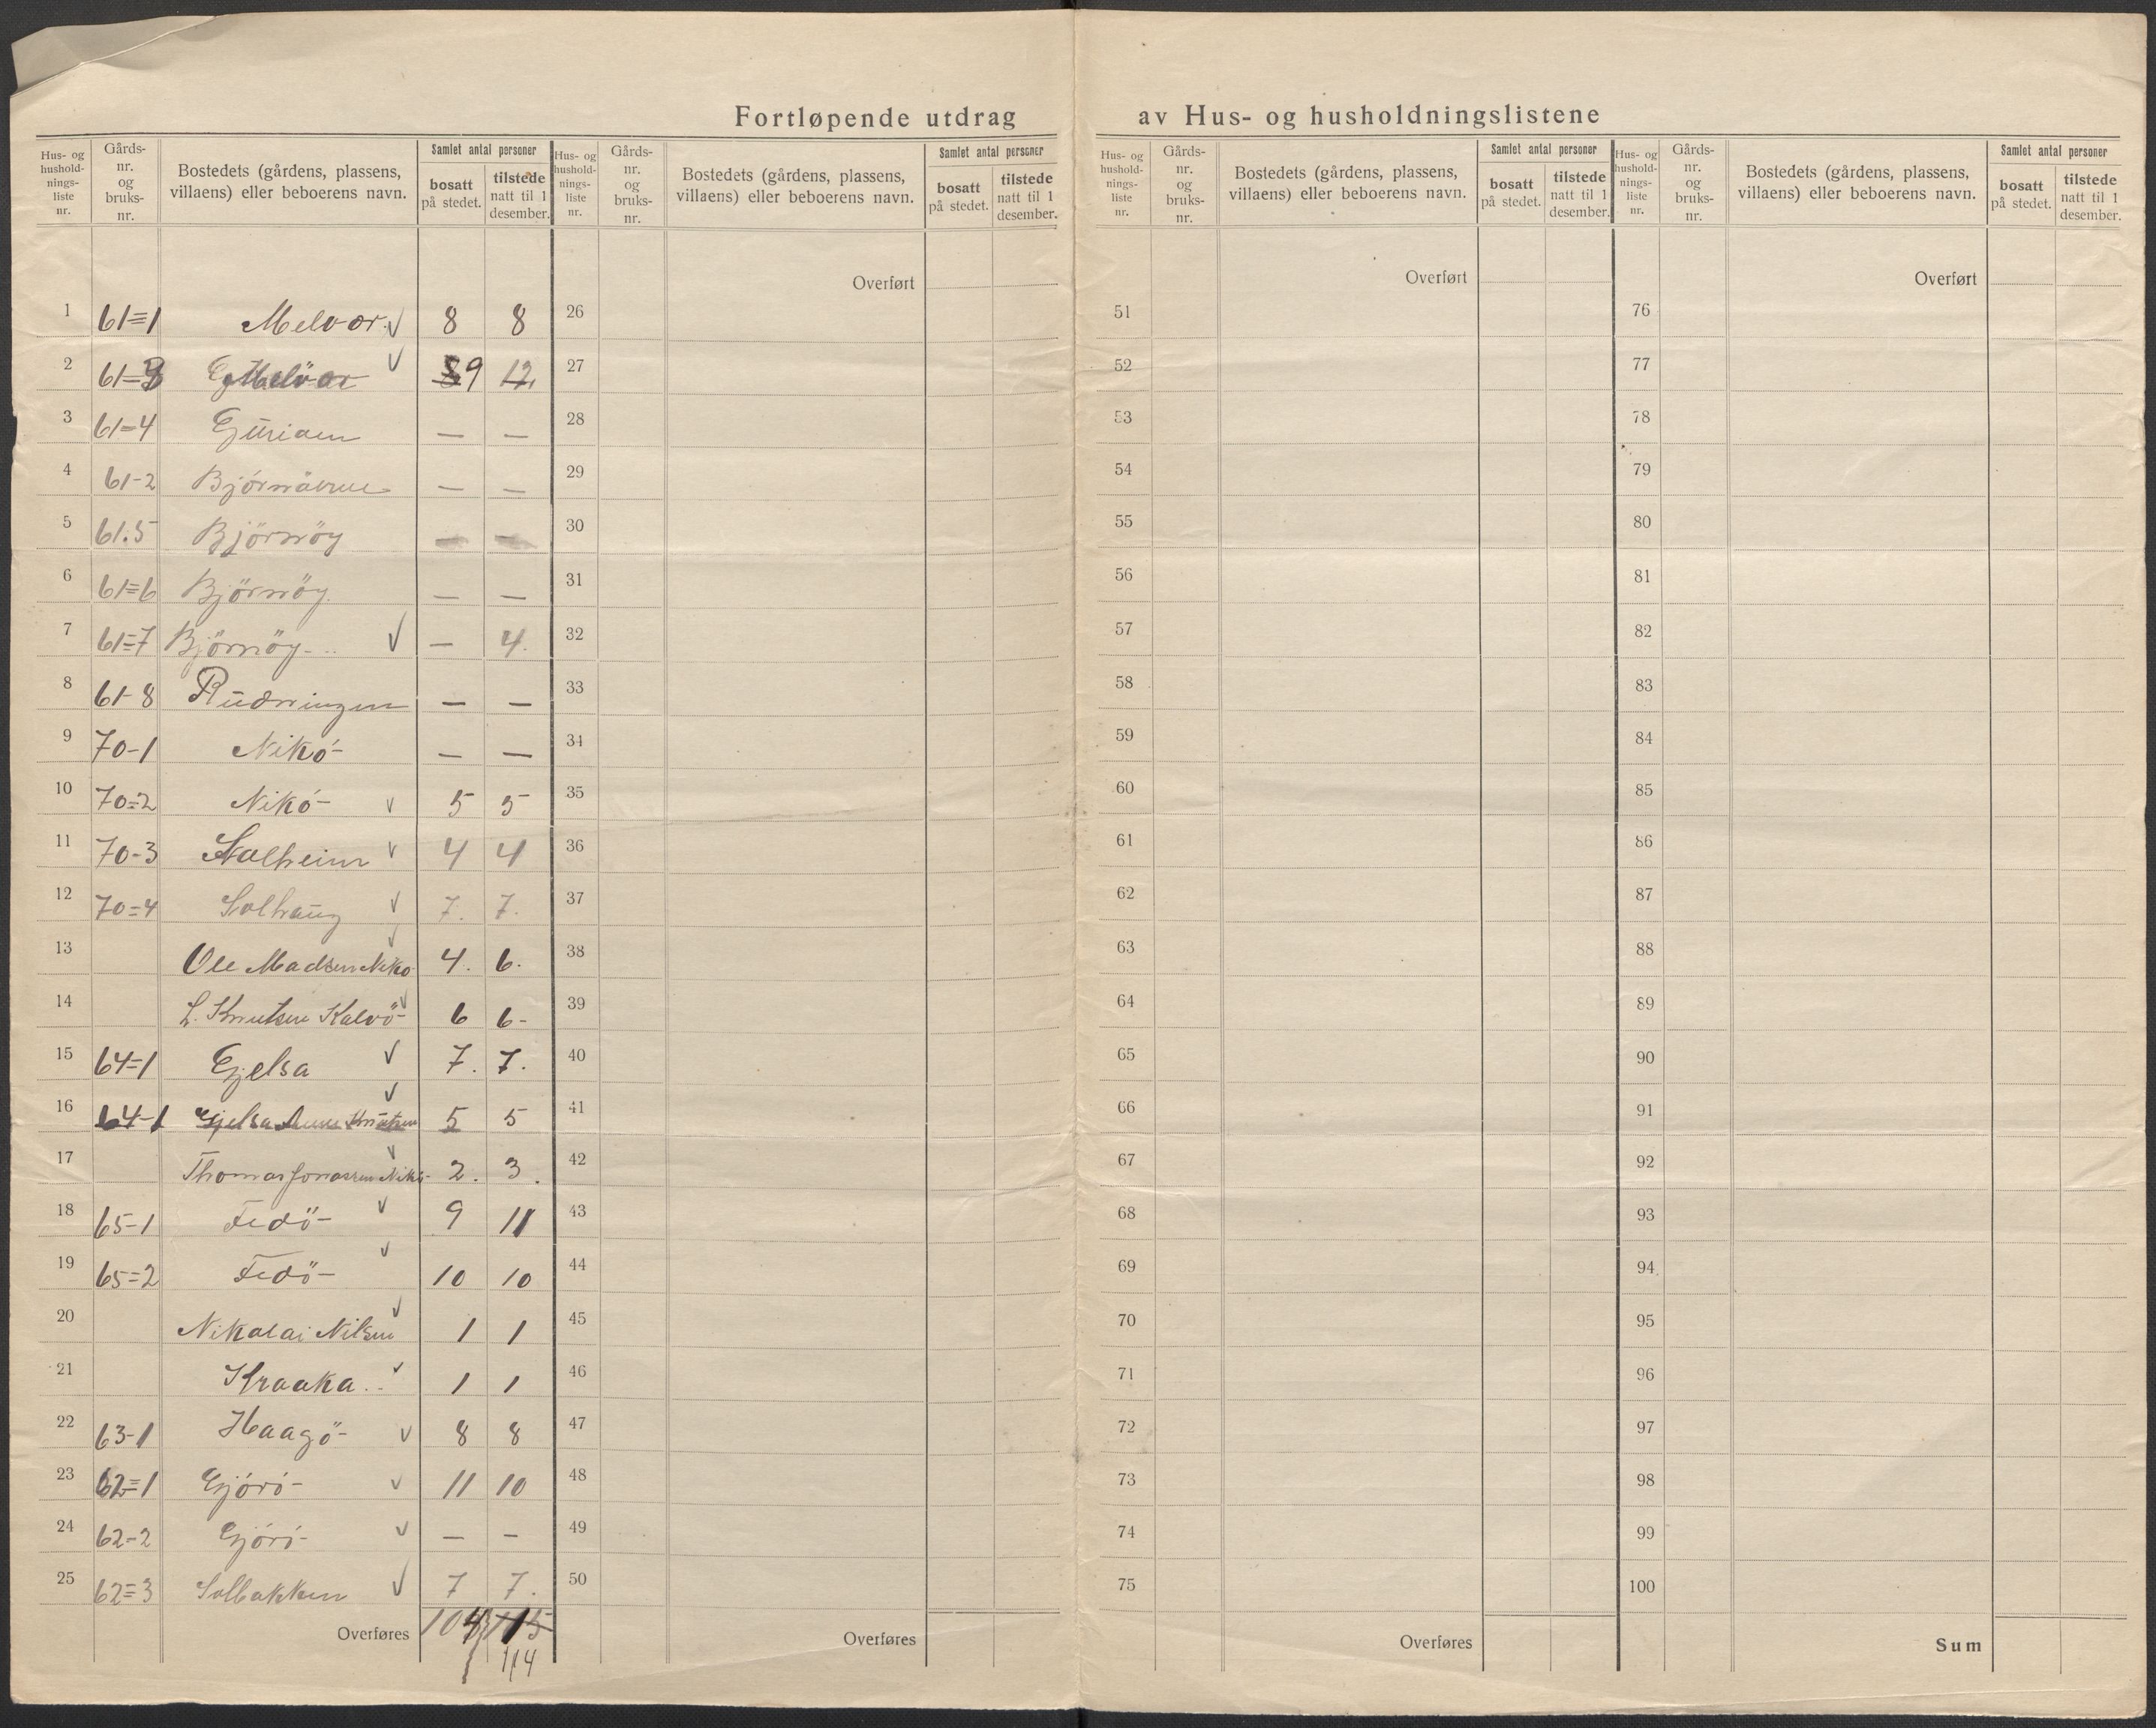 Fortløpende utdrag av Hus- og husholdningslistene
Hus- og hushold-nings-liste nr. Gårds-nr. og bruks-nr. Bostedets (gårdens, plassens, villaens) eller beboerens navn. Samlet antal personer bosatt på stedet. tilstede natt til 1 desember.
Hus- og hushold-nings-liste nr. Gårds-nr. og bruks-nr. Bostedets (gårdens, plassens, villaens) eller beboerens navn. Samlet antal personer bosatt på stedet. tilstede natt til 1 desember.
Hus- og hushold-nings-liste nr. Gårds-nr. og bruks-nr. Bostedets (gårdens, plassens, villaens) eller beboerens navn. Samlet antal personer bosatt på stedet. tilstede natt til 1 desember.
Hus- og hushold-nings-liste nr. Gårds-nr. og bruks-nr. Bostedets (gårdens, plassens, villaens) eller beboerens navn. Samlet antal personer bosatt på stedet. tilstede natt til 1 desember.
Overført Overført Overført
1 61=1 Melvær. ✓ 8 8 26 51 76
2 61=3 Melvær ✓ 9 12. 27 52 77
3 61=4 — — 28 53 78
4 61-2 — — 29 54 79
5 61.5 Björnöy — — 30 55 80
6 61=6 Björnöy. — — 31 56 81
7 61=7 Björnöy ✓ — 4. 32 57 82
8 61-8 Rudningen — — 33 58 83
9 70-1 Nikö- — — 34 59 84
10 70=2 Nikö- ✓ 5 5 35 60 85
11 70-3 Stalheim ✓ 4 4 36 61 86
12 70=4 Solhaug ✓ 7. 7. 37 62 87
13 Ole Madsen Nikö ✓ 4. 6. 38 63 88
14 L. Knutsen Kalvö- ✓ 6 6- 39 64 89
15 64=1 Gjelsa ✓ 7. 7. 40 65 90
16 64-1 Gjelsa Knutsen ✓ 5 5 41 66 91
17 Thomas Jonassen Nikö- ✓ 2. 3. 42 67 92
18 65-1 Fedö- ✓ 9 11 43 68 93
19 65=2 Fedö- ✓ 10 10 44 69 94
20 Nikolai Nilsen ✓ 1 1 45 70 95
21 Kraaka.. ✓ 1 1 46 71 96
22 63-1 Haagö- ✓ 8 8 47 72 97
23 62=1 Gjörö- ✓ 11 10 48 73 98
24 62-2 Gjörö- ✓ — — 49 74 99
25 62=3 Solbakken ✓ 7 7. 50 75 100
Overføres 115 Overføres Overføres Sum
114